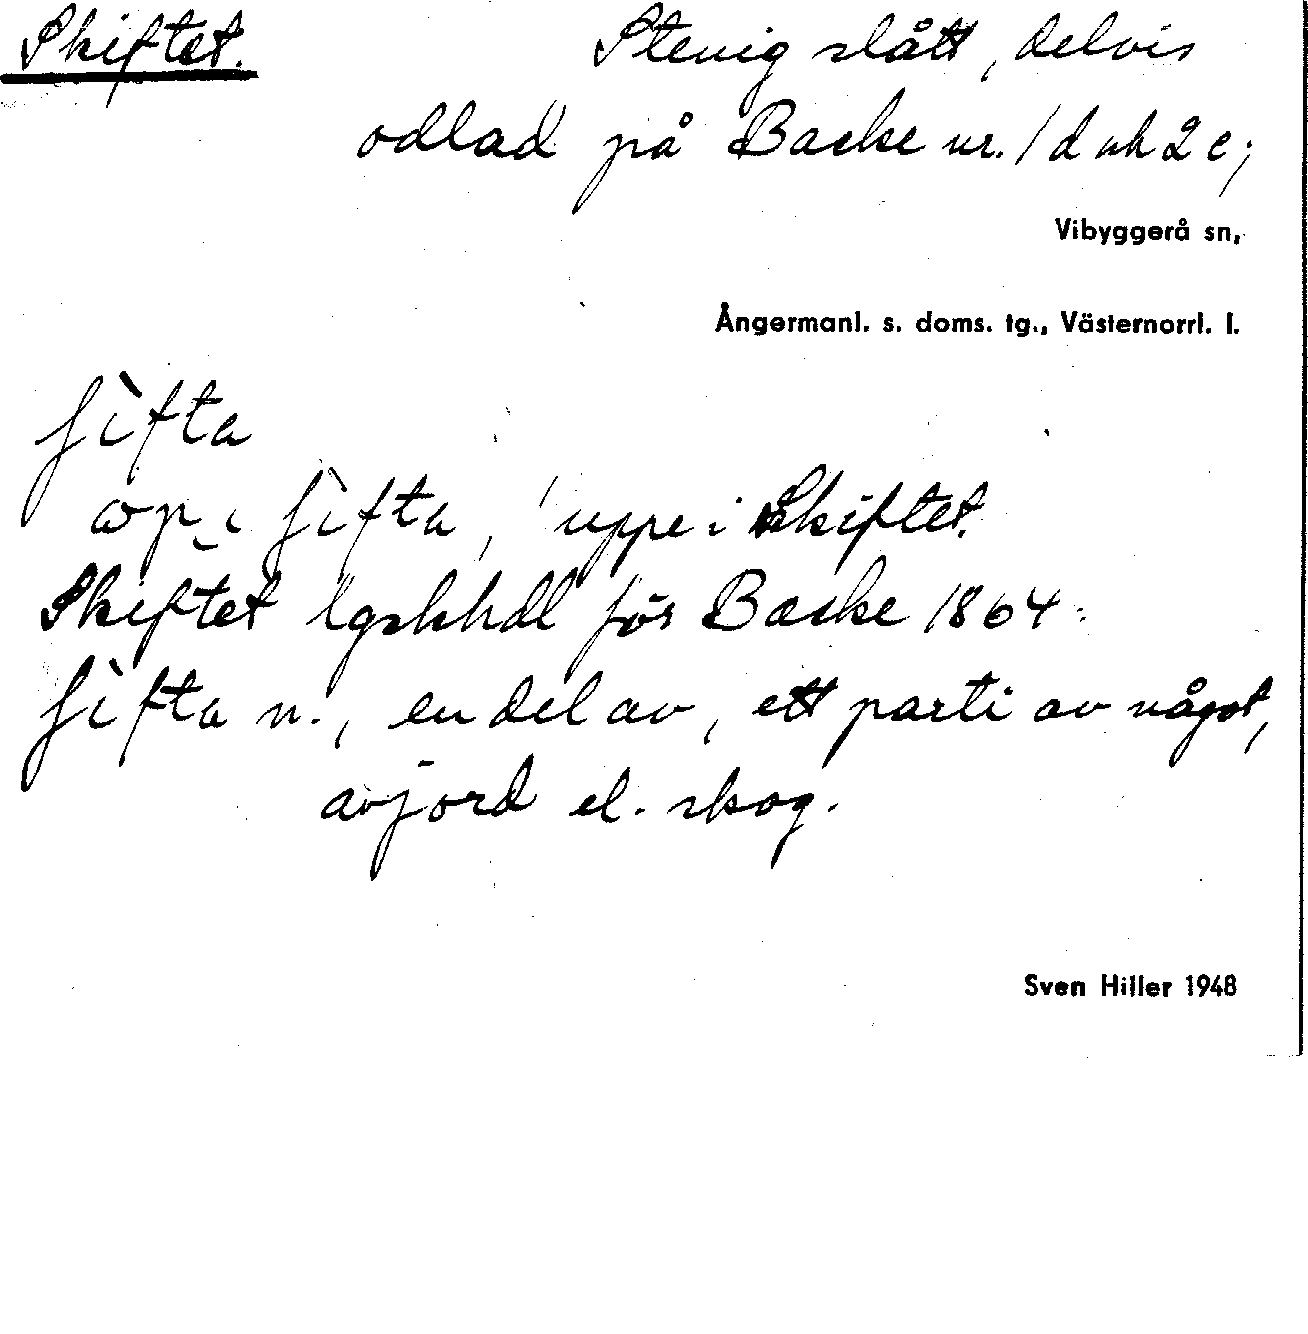 Skiftet. Stenig slått, delvis
odlad på Backe nr. 1d och 2c;
Vibyggerå sn,
Ångermanl. s. doms. tg., Västernorrl. l.
ʃìfta
op i ʃìfta, 'uppe i Skiftet.'
Skiftet lgskhdl för Backe 1864.
ʃìfta n., en del av, ett parti av något,
av jord el. skog.
Sven Hiller 1948